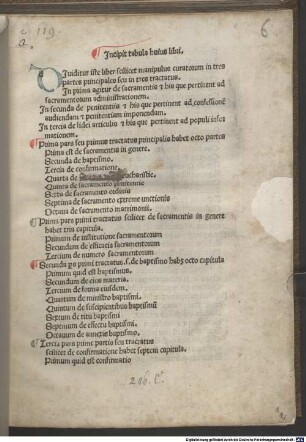 c. 119
a.
6
Incipit tabula huius libri.
Diuiditur iste liber scilicet manipulus curatorum in tres
partes principales seu in tres tractatus.
In prima agitur de sacramentis & his que pertinent ad
sacramentorum administrationem.
In secunda de penitentia & his que pertinent ad confessionē
audiendam & penitentiam imponendam.
In tercia de fidei articulis & his que pertinent ad populi infor
mationem.
Prima pars seu primus tractatus principalis habet octo partes
Prima est de sacramentis in genere.
Secunda de baptismo.
Tercia de confirmatione.
Quarta de eucharistie.
Quinta de sacramento penitentie
Sexta de sacramento ordinis
Septima de sacramento extreme unctionis
Octaua de sacramento matrimonii.
Prima pars primi tractatus scilicet de sacramentis in genere
habet tria capitula.
Primum de institutione sacramentorum
Secundum de efficacia sacramentorum
Tercium de numero sacramentorum
Secunda ps primi tractatus .s. de baptismo habz octo capitula
Primum quid est baptismus.
Secundum de eius materia.
Tercium de forma eiusdem.
Quartum de ministro baptismi.
Quintum de suscipientibus baptismū
Sextum de ritu baptismi
Septimum de effectu baptismi.
Octauum de sanctis baptismo.
Tercia pars prime partis seu tractatus
scilicet de confirmatione habet septem capitula.
Primum quid est confirmatio
206. C.